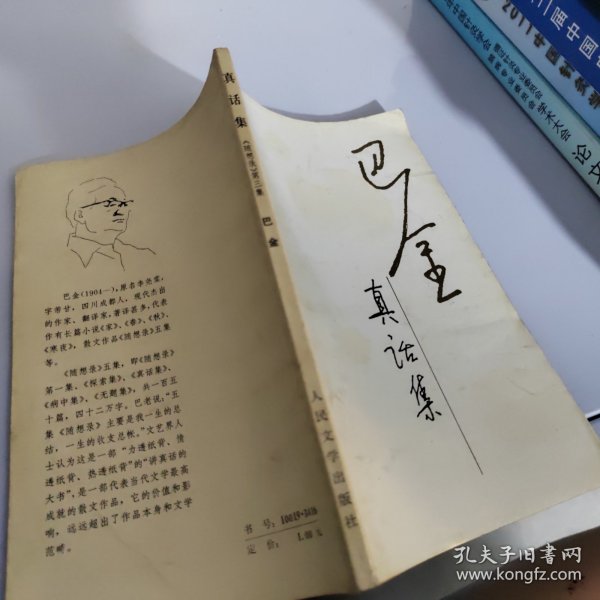 巴金
真话集
真话集
《随想录》第三集
巴金
人民文学出版社
巴金(1904—),原名李尧棠,
字芾甘,四川成都人,现代杰出
的作家、翻译家,著译甚多,代表
作有长篇小说《家》、《春》、《秋》、
《寒夜》,散文作品《随想录》五集
等。
《随想录》五集,即《随想录》
第一集、《探索集》、《真话集》、
《病中集》、《无题集》,共一百五
十篇,四十二万字。巴老说:“五
集《随想录》主要是我一生的总
结,一生的收支总帐。”文艺界人
士认为这是一部“力透纸背、情
透纸背、热透纸背”的“讲真话的
大书”,是一部代表当代文学最高
成就的散文作品,它的价值和影
响,远远超出了作品本身和文学
范畴。
书号:10019·
定价:1.00元
二届中国
2011中国针灸学
学术大会 论文
孔夫子旧书网
www.kongfz.com